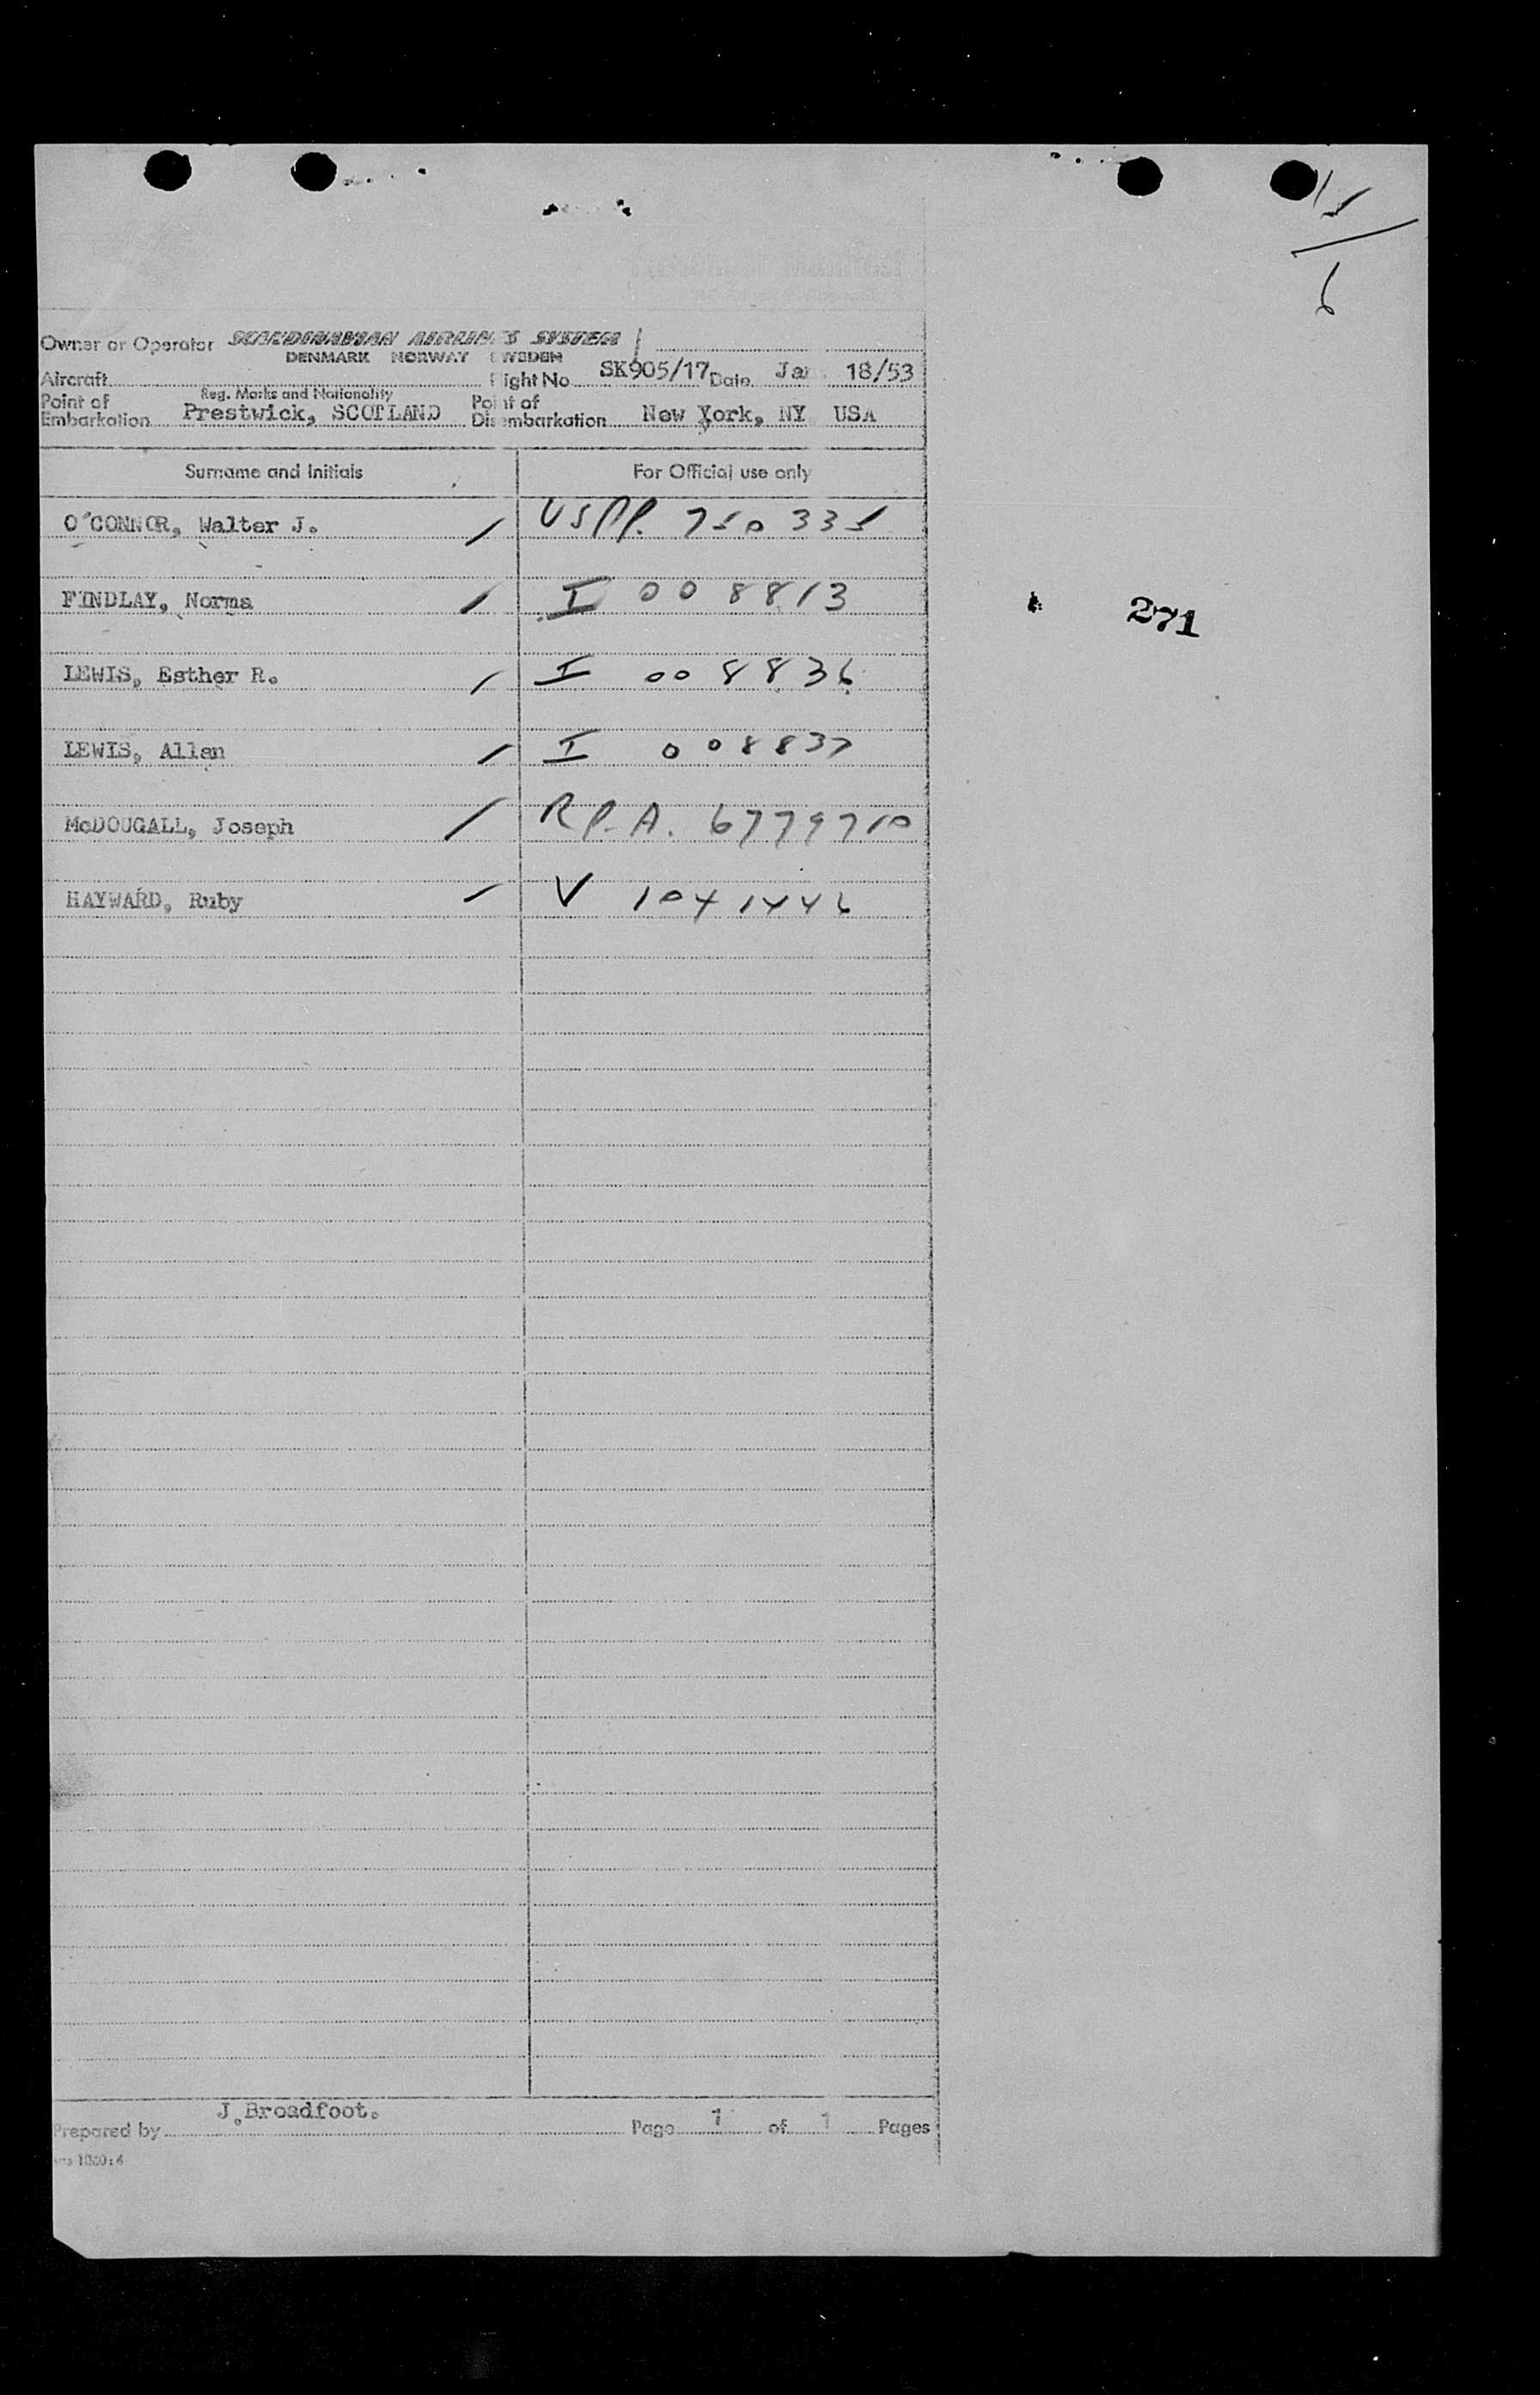 Owner or Operator SCANDINAVIAN AIRLINES SYSTEM
DENMARK NORWAY SWEDEN
Aircraft Flight No SK905/17 Date Jan 18/53
Reg. Marks and Nationality
Point of Embarkation Prestwick, SCOTLAND Point of Disembarkation New York, NY USA
Surname and Initials For Official use only
O'CONNOR, Walter J. / USPP. 750335
FINDLAY, Norma / I 008813
271
LEWIS, Esther R. / I 008836
LEWIS, Allan / I 008837
McDOUGALL, Joseph / R.P.A. 6779710
HAYWARD, Ruby / V 1041446
J. Broadfoot.
Prepared by Page 1 of 1 Pages